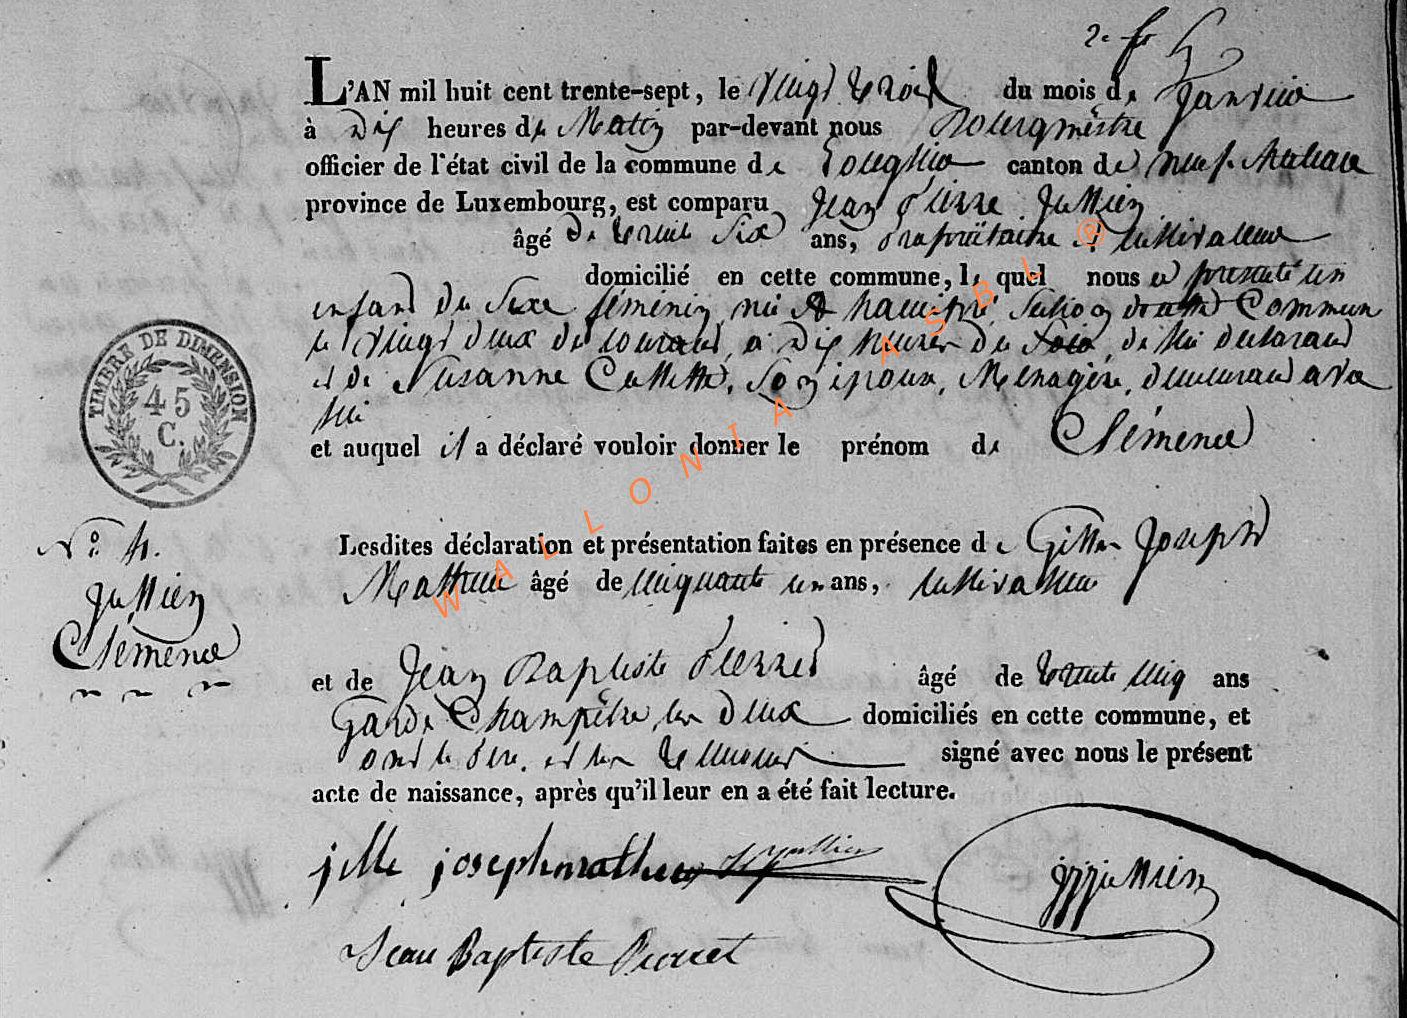 L'AN mil huit cent trente-sept, le vingt trois du mois de Janvier
à Dix heures du Matin par-devant nous Bourgmestre
officier de l'état civil de la commune de Longlier canton de neufchateau
province de Luxembourg, est comparu Jean Pierre Jullien
âgé de trente Six ans, propriétaire et cultivateur
domicilié en cette commune, le quel nous a presenté un
enfant du Sexe féminin, né à Section Commune
le vingt deux du courant, à Dix heures du Soir, de lui declarant
et de Susanne Collette, Son epouse, Menagère, demeurant avec
lui
et auquel il a déclaré vouloir donner le prénom de Clémence
TIMBRE DE DIMENSION
45
C.
N° 4.
Jullien
Clémence
Lesdites déclaration et présentation faites en présence de Gille Joseph
Mathieu âgé de cinquante un ans, cultivateur
et de Jean Baptiste Pierret âgé de trente cinq ans
Garde Champêtre, les deux domiciliés en cette commune, et
ont le Père, et les témoins signé avec nous le présent
acte de naissance, après qu'il leur en a été fait lecture.
jille joseph mathieu Jullien
Jean Baptiste Pierret
WALLONIA ASBL ®